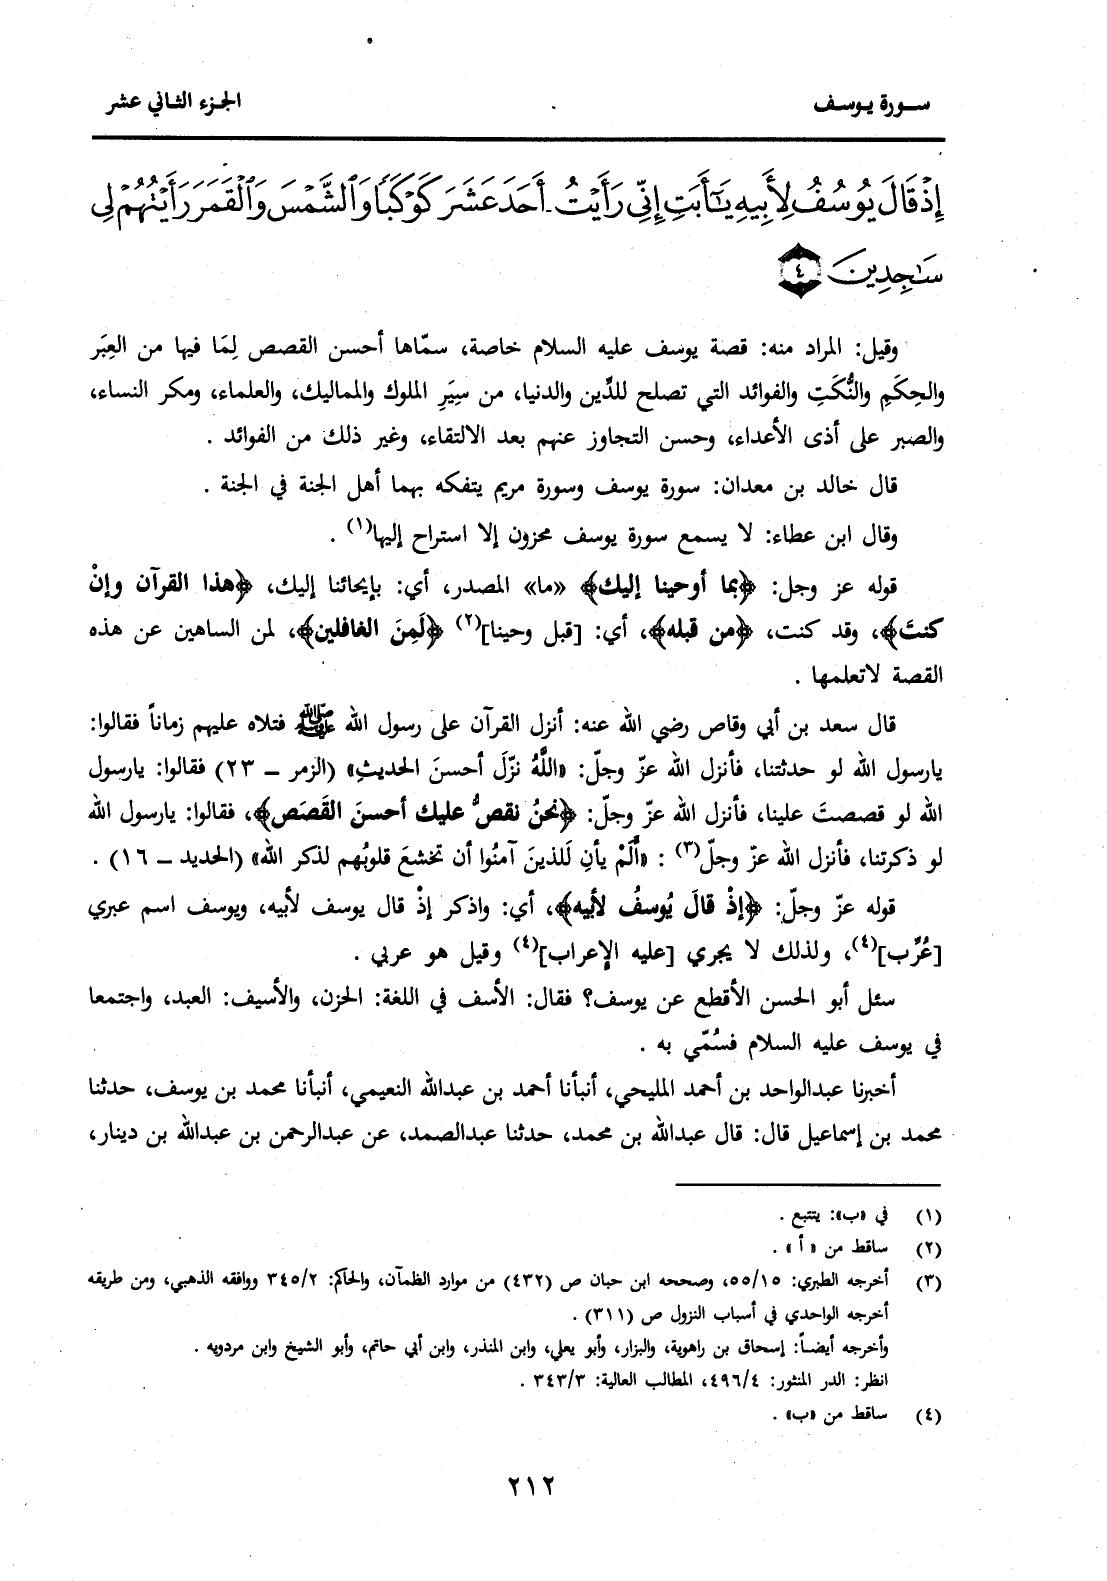 سورة يوسف
الجزء الثاني عشر
إِذْ قَالَ يُوسُفُ لِأَبِيهِ يَٰٓأَبَتِ إِنِّى رَأَيْتُ أَحَدَ عَشَرَ كَوْكَبًا وَٱلشَّمْسَ وَٱلْقَمَرَ رَأَيْتُهُمْ لِى
سَٰجِدِينَ ٤
وقيل: المراد منه: قصة يوسف عليه السلام خاصة، سمّاها أحسن القصص لِمَا فيها من العِبَر
والحِكَمِ والنُّكَتِ والفوائد التي تصلح للدِّين والدنيا، من سِيَرِ الملوك والمماليك، والعلماء، ومكر النساء،
والصبر على أذى الأعداء، وحسن التجاوز عنهم بعد الالتقاء، وغير ذلك من الفوائد .
قال خالد بن معدان: سورة يوسف وسورة مريم يتفكه بهما أهل الجنة في الجنة .
وقال ابن عطاء: لا يسمع سورة يوسف محزون إلا استراح إليها(١) .
قوله عز وجل: ﴿بما أوحينا إليك﴾ «ما» المصدر، أي: بإيحائنا إليك، ﴿هذا القرآن وإنْ
كنتَ﴾، وقد كنت، ﴿من قبله﴾، أي: [قبل وحينا](٢) ﴿لَمِنَ الغافلين﴾، لمن الساهين عن هذه
القصة لاتعلمها .
قال سعد بن أبي وقاص رضي الله عنه: أنزل القرآن على رسول الله ﷺ فتلاه عليهم زماناً فقالوا:
يارسول الله لو حدثتنا، فأنزل الله عزّ وجلّ: «اللَّهُ نزّلَ أحسنَ الحديثِ» (الزمر ــ ٢٣) فقالوا: يارسول
الله لو قصصتَ علينا، فأنزل الله عزّ وجلّ: ﴿نحنُ نقصُّ عليك أحسنَ القَصَص﴾، فقالوا: يارسول الله
لو ذكرتنا، فأنزل الله عزّ وجلّ(٣) : «أَلَمْ يأنِ لَلذينَ آمنُوا أن تخشعَ قلوبُهم لذكر الله» (الحديد ــ ١٦) .
قوله عزّ وجلّ: ﴿إذْ قالَ يُوسفُ لأبيه﴾، أي: واذكر إذْ قال يوسف لأبيه، ويوسف اسم عبري
[عُرِّب](٤)، ولذلك لا يجري [عليه الإعراب](٤) وقيل هو عربي .
سئل أبو الحسن الأقطع عن يوسف؟ فقال: الأسف في اللغة: الحزن، والأسيف: العبد، واجتمعا
في يوسف عليه السلام فسُمّي به .
أخبرنا عبدالواحد بن أحمد المليحي، أنبأنا أحمد بن عبدالله النعيمي، أنبأنا محمد بن يوسف، حدثنا
محمد بن إسماعيل قال: قال عبدالله بن محمد، حدثنا عبدالصمد، عن عبدالرحمن بن عبدالله بن دينار،
(١) في «ب»: يتتبع .
(٢) ساقط من « أ » .
(٣) أخرجه الطبري: ٥٥/١٥، وصححه ابن حبان ص (٤٣٢) من موارد الظمآن، والحاكم: ٣٤٥/٢ ووافقه الذهبي، ومن طريقه
أخرجه الواحدي في أسباب النزول ص (٣١١) .
وأخرجه أيضاً: إسحاق بن راهوية، والبزار، وأبو يعلي، وابن المنذر، وابن أبي حاتم، وأبو الشيخ وابن مردويه .
انظر: الدر المنثور: ٤٩٦/٤، المطالب العالية: ٣٤٣/٣ .
(٤) ساقط من «ب» .
٢١٢